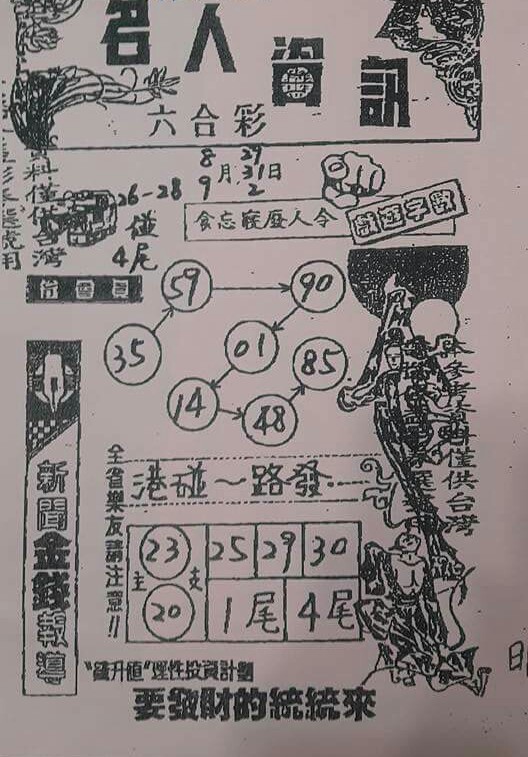 名人資訊
六合彩
8 29
月 31 日
9 2
26-28
碰
4尾
資料僅供台灣
令人廢寢忘食
59 90
35 01 85
14 48
本參考資料僅供台灣
全省樂友請注意!!
港碰~路發
新聞金錢報導
主 23 支 25 29 30
20 1尾 4尾
理性投資計劃
要發財的統統來